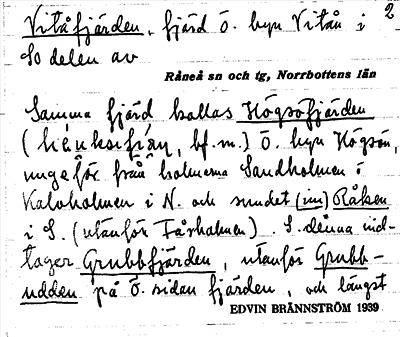 Vitåfjärden, fjärd Ö. byn Vitån i 2
SO delen av
Råneå sn och tg, Norrbottens län
Samma fjärd kallas Högsöfjärden
( bf. m.) Ö. byn Högsön,
unge för från holmarna Sandholmen i
Kalvholmen i N. och sundet (im) Råken
i S. (utanför Fårholmen). S. denna ind-
tager Grubbfjärden, utanför Grubb-
udden på Ö. sidan fjärden, och längst
EDVIN BRÄNNSTRÖM 1939